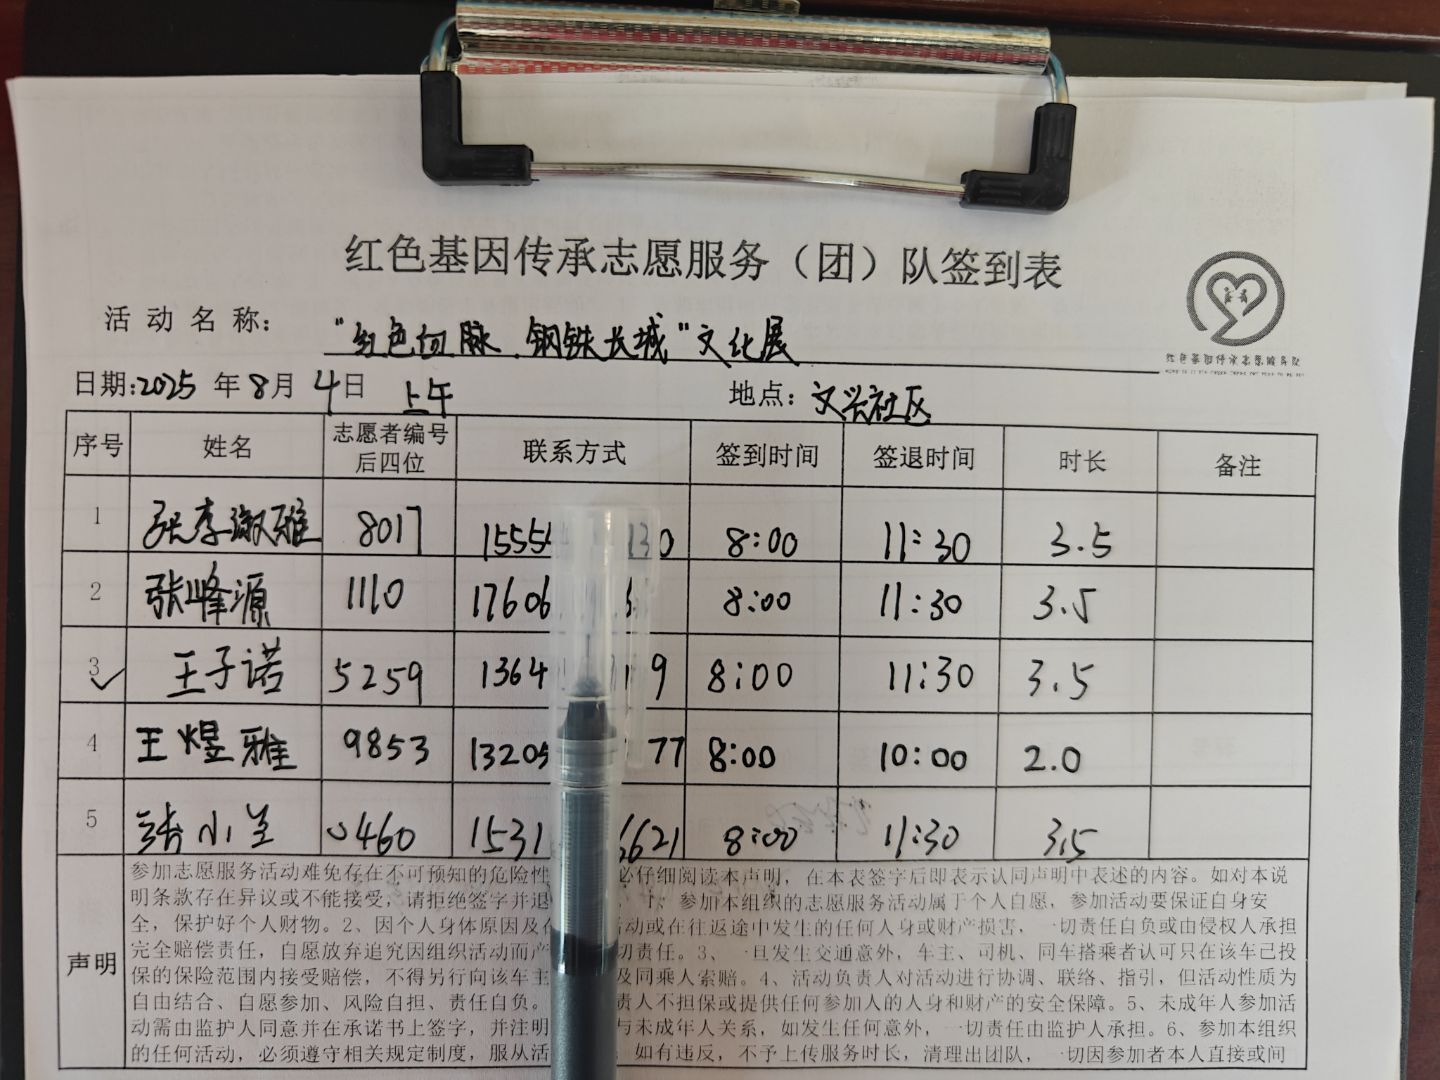 红色基因传承志愿服务（团）队签到表
活动名称： “红色血脉 钢铁长城”文化展
红色基因传承志愿服务队
日期:2025年8月4日 上午 地点：文兴社区
序号 姓名 志愿者编号后四位 联系方式 签到时间 签退时间 时长 备注
1 张李淑雅 8017 1555 130 8:00 11:30 3.5
2 张峰源 1110 17606 6 8:00 11:30 3.5
3 王子诺 5259 1364 19 8:00 11:30 3.5
4 王煜雅 9853 13205 77 8:00 10:00 2.0
5 张小兰 0460 1531 6621 8:00 11:30 3.5
声明
参加志愿服务活动难免存在不可预知的危险性 必仔细阅读本声明，在本表签字后即表示认同声明中表述的内容。如对本说
明条款存在异议或不能接受，请拒绝签字并退 1、参加本组织的志愿服务活动属于个人自愿，参加活动要保证自身安
全，保护好个人财物。2、因个人身体原因及在 活动或在往返途中发生的任何人身或财产损害，一切责任自负或由侵权人承担
完全赔偿责任，自愿放弃追究因组织活动而产 切责任。3、一旦发生交通意外，车主、司机、同车搭乘者认可只在该车已投
保的保险范围内接受赔偿，不得另行向该车主 及同乘人索赔。4、活动负责人对活动进行协调、联络、指引，但活动性质为
自由结合、自愿参加、风险自担、责任自负。 责人不担保或提供任何参加人的人身和财产的安全保障。5、未成年人参加活
动需由监护人同意并在承诺书上签字，并注明 与未成年人关系，如发生任何意外，一切责任由监护人承担。6、参加本组织
的任何活动，必须遵守相关规定制度，服从活 如有违反，不予上传服务时长，清理出团队，一切因参加者本人直接或间